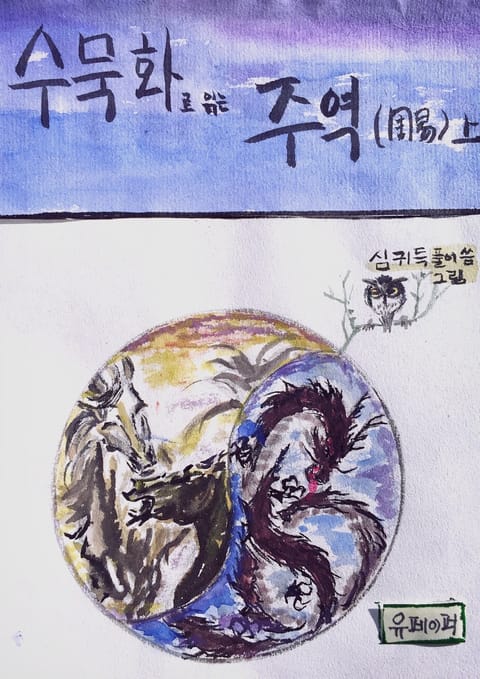 수묵화로 읽는
주역(周易)上
심귀득 풀어 씀
그림
유페이퍼